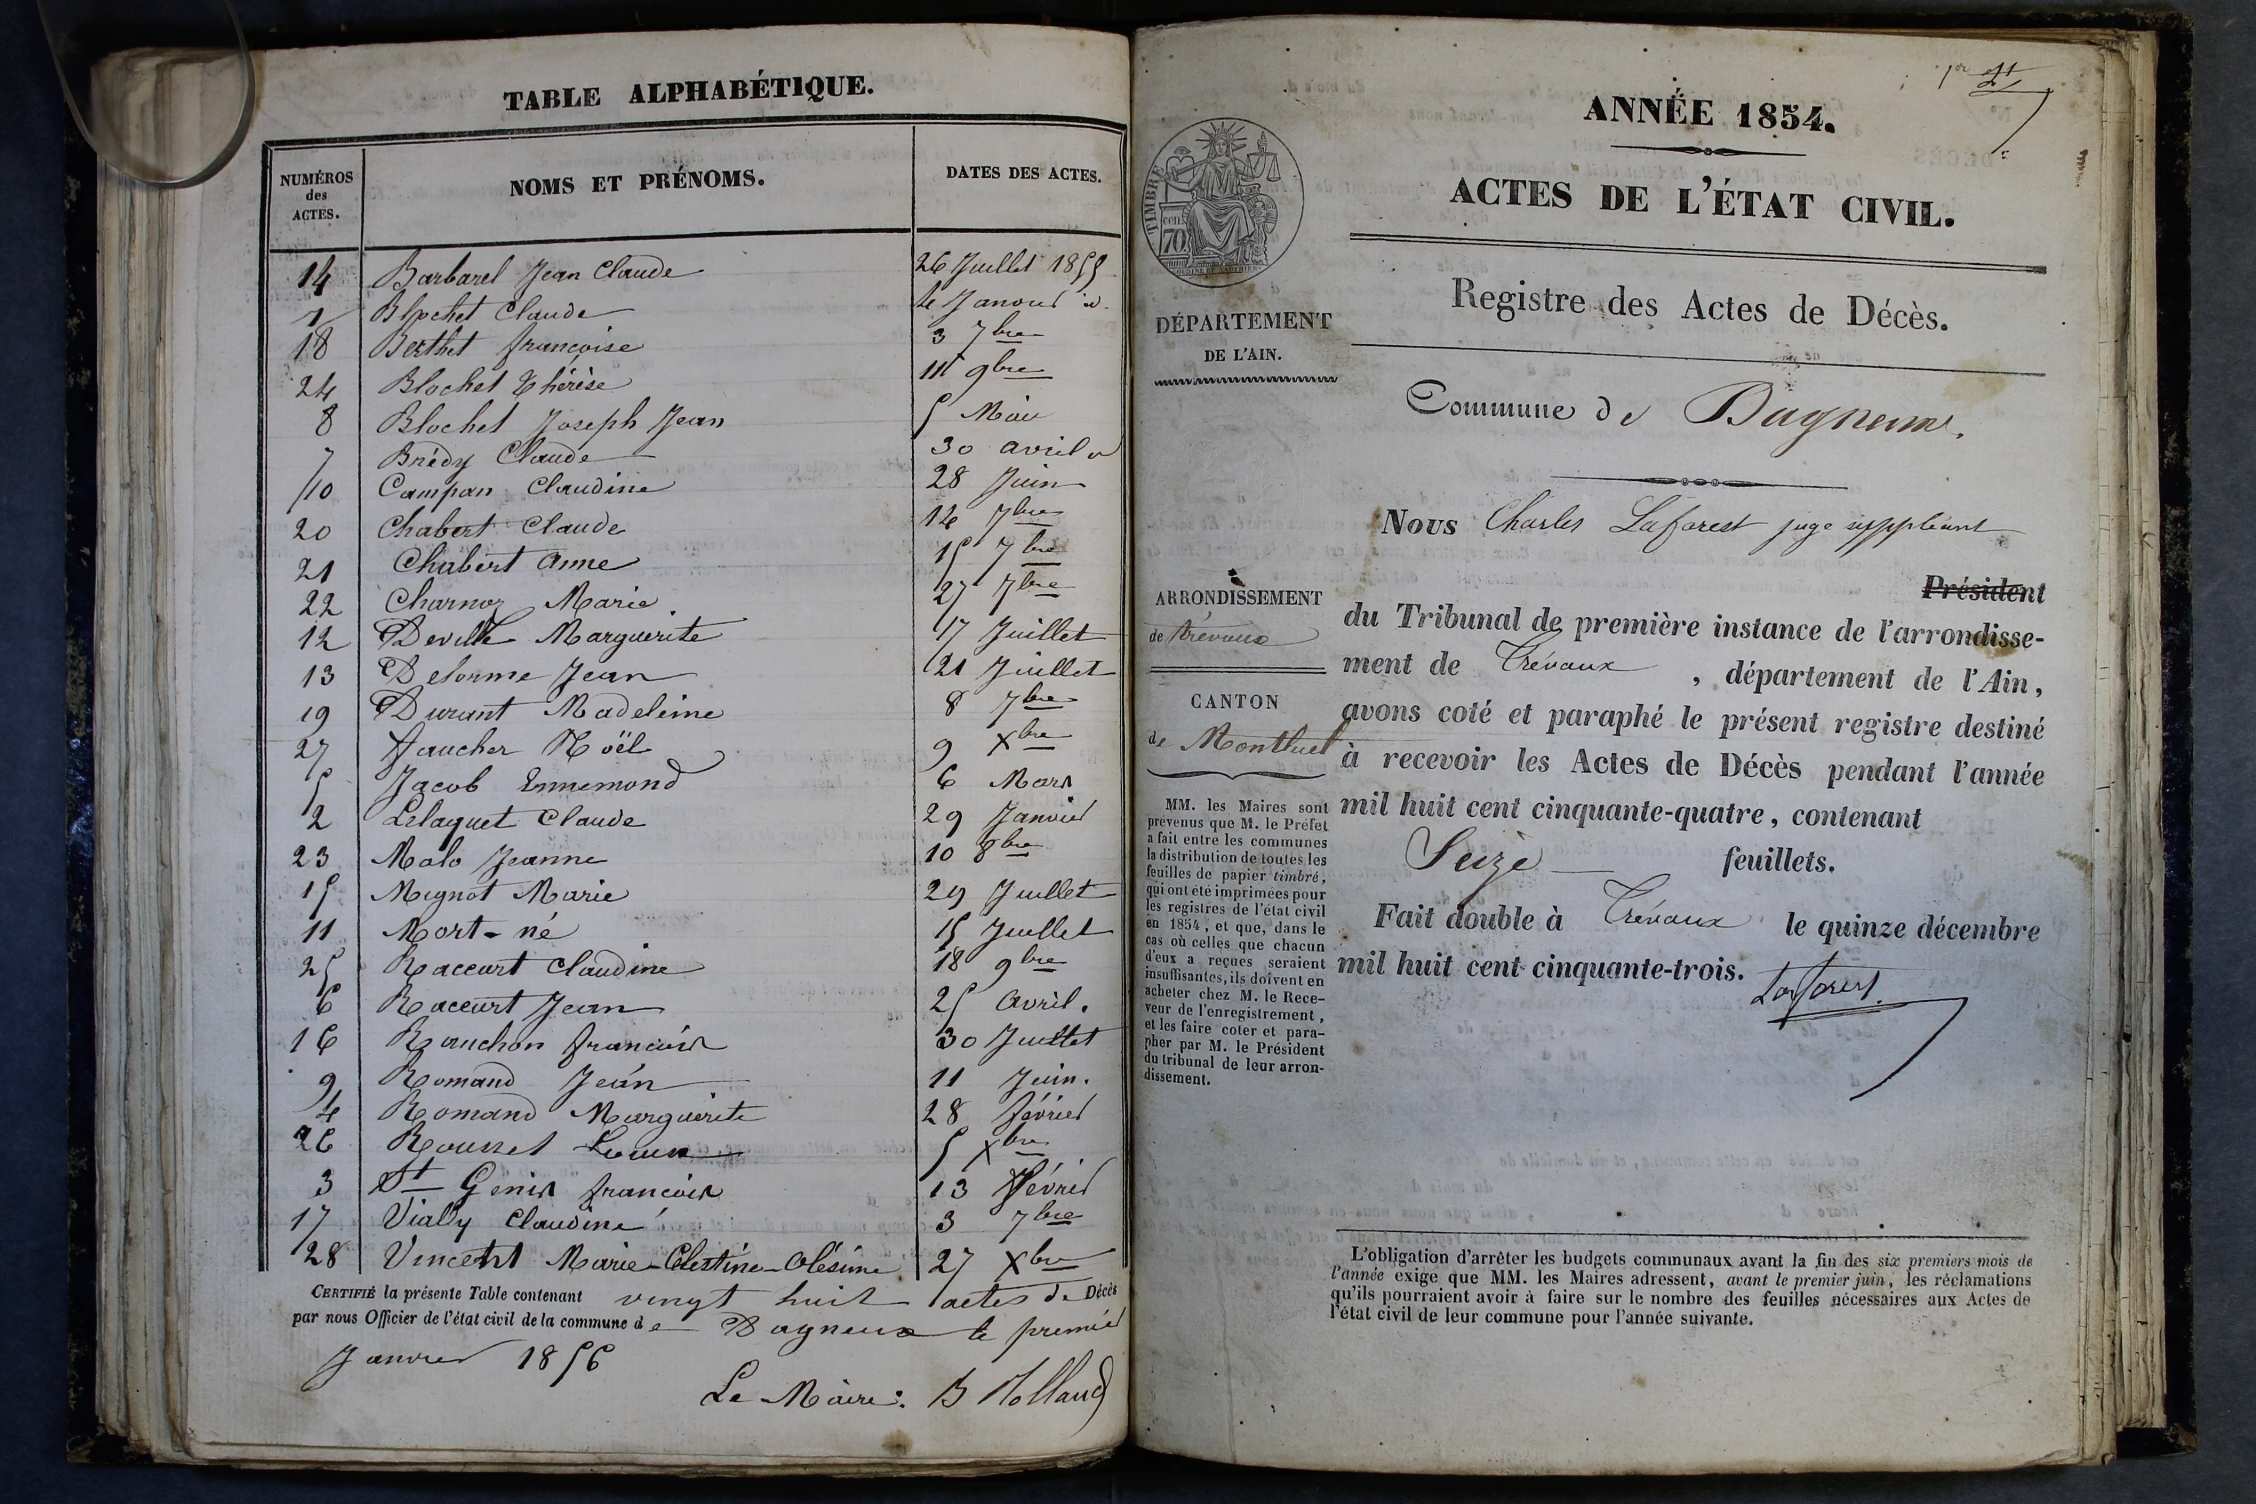 TABLE ALPHABÉTIQUE.
NUMÉROS des ACTES. NOMS ET PRÉNOMS. DATES DES ACTES.
14 Barbarel Jean Claude 26 Juillet 1855
1 Blochet Claude Janvier
18 Berthet françoise 3 7bre
24 Blochet Thérèse 11 9bre
8 Blochet Joseph Jean 5 Mai
7 Brédy Claude 30 avril
10 Campan Claudine 28 Juin
20 Chabert Claude 12 7bre
21 Chabert Anne 15 7bre
22 Charnoz Marie 27 7bre
12 Deville Marguerite 17 Juillet
13 Delorme Jean 21 Juillet
19 Durant Madeleine 8 7bre
27 faucher Noël 9 Xbre
5 Jacob Ennemond 6 Mars
2 Lelaquet Claude 29 Janvier
23 Malo Jeanne 10 8bre
15 Mignot Marie 29 Juillet
11 Mort-né 15 Juillet
25 Raccurt Claudine 18 9bre
6 Raccurt Jean 25 avril.
16 Ranchon françois 30 Juillet
9 Romand Jean 11 Juin.
4 Romand Marguerite 28 février
26 Rousset Louis 5 Xbre
3 St Genis françois 13 février
17 Vially Claudine 3 7bre
28 Vincent Marie-Célestine-Olésime 27 Xbre
CERTIFIÉ la présente Table contenant vingt huit actes de Décès
par nous Officier de l'état civil de la commune de Dagneux le premier
Janvier 1856
Le Maire: B Rolland
1er
ANNÉE 1854.
ACTES DE L'ÉTAT CIVIL.
Registre des Actes de Décès.
Commune de Dagneux.
TIMBRE
70 cen
DÉPARTEMENT
DE L'AIN.
ARRONDISSEMENT
de Trévoux
CANTON
de Montluel
MM. les Maires sont
prévenus que M. le Préfet
a fait entre les communes
la distribution de toutes les
feuilles de papier timbré,
qui ont été imprimées pour
les registres de l'état civil
en 1854, et que, dans le
cas où celles que chacun
d'eux a reçues seraient
insuffisantes, ils doivent en
acheter chez M. le Rece-
veur de l'enregistrement,
et les faire coter et para-
pher par M. le Président
du tribunal de leur arron-
dissement.
Nous Charles Laforest juge suppléant
Président
du Tribunal de première instance de l'arrondisse-
ment de Trévoux, département de l'Ain,
avons coté et paraphé le présent registre destiné
à recevoir les Actes de Décès pendant l'année
mil huit cent cinquante-quatre, contenant
Seize feuillets.
Fait double à Trévoux le quinze décembre
mil huit cent cinquante-trois.
Laforest
L'obligation d'arrêter les budgets communaux avant la fin des six premiers mois de
l'année exige que MM. les Maires adressent, avant le premier juin, les réclamations
qu'ils pourraient avoir à faire sur le nombre des feuilles nécessaires aux Actes de
l'état civil de leur commune pour l'année suivante.